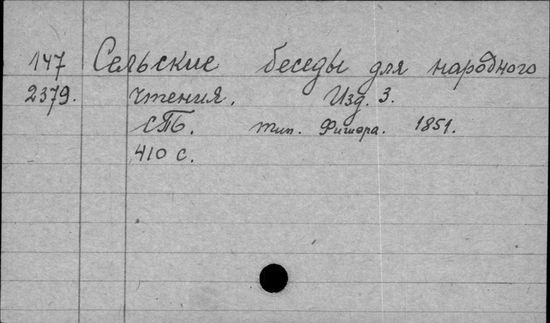 147 Сельские беседы для народного
2379. чтения. Изд. 3.
СПБ. тип. Фишера. 1851.
410 с.